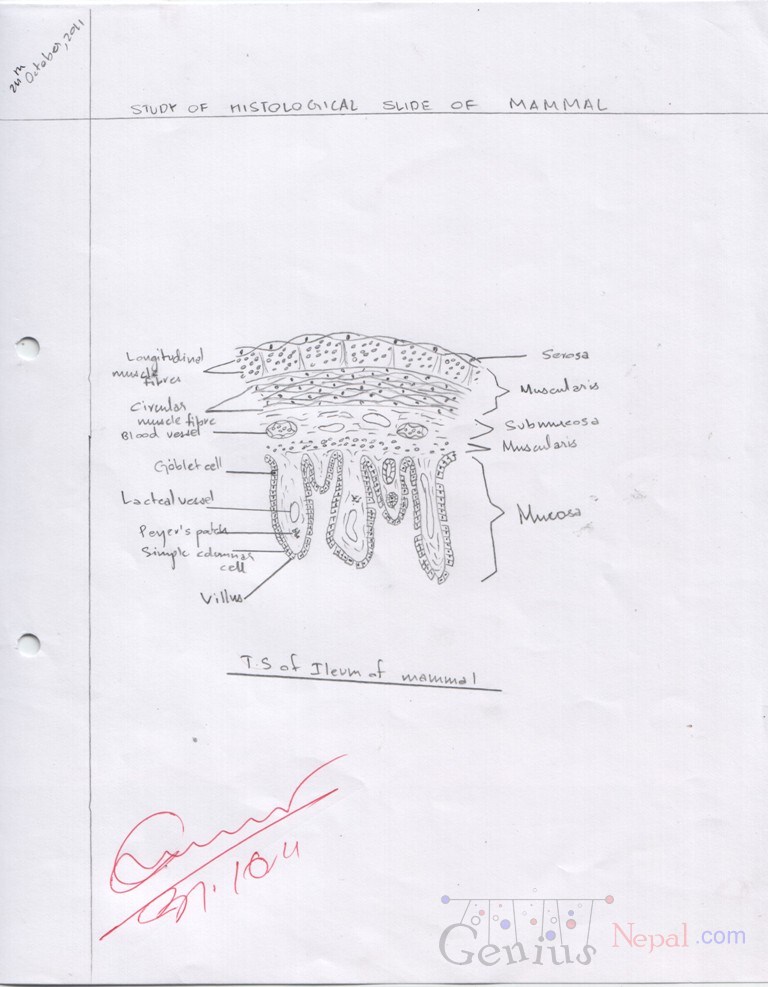 24th October, 2011
STUDY OF HISTOLOGICAL SLIDE OF MAMMAL
Longitudinal
muscle
fibres
Circular
muscle fibre
Blood vessel
Goblet cell
Lacteal vessel
Peyer's patch
Simple columnar
cell
Villus
Serosa
Muscularis
Submucosa
Muscularis
Mucosa
T.S of Ileum of mammal
Genius Nepal.com